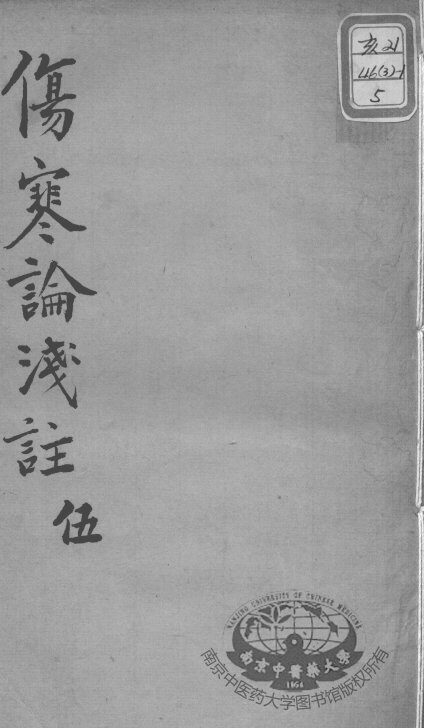 傷寒論淺註
伍
亥21
46(3)-1
5
NANJING UNIVERSITY OF CHINESE MEDICINE
南京中醫藥大學
1954
南京中医药大学图书馆版权所有